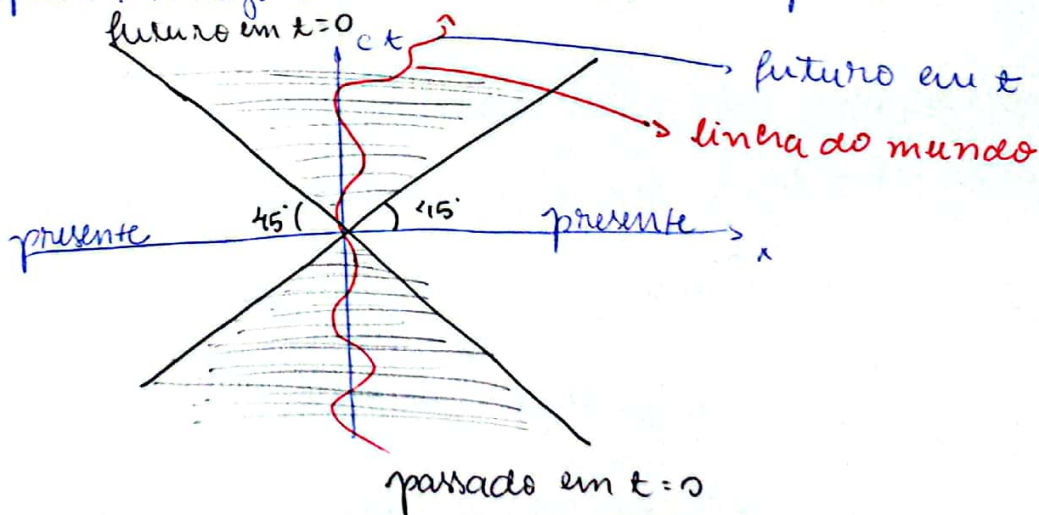 futuro em t=0
ct
futuro em t
linha do mundo
45°
45°
presente
presente
x
passado em t=0